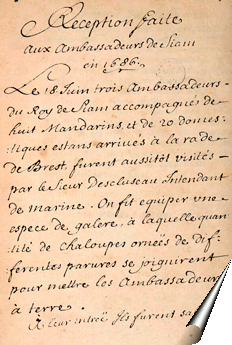 Reception faite
aux Ambassadeurs de Siam
en 1686.
Le 18 Juin trois Ambassadeurs
du Roy de Siam accompagnés de
huit Mandarins, et de 20 domes-
tiques estans arrivés à la rade
de Brest, furent aussitôt visités
par le Sieur Descluseau Intendant
de marine. On fit equiper une
espece de galere, à laquelle quan
tité de chaloupes ornées de dif-
ferentes parures se joignirent
pour mettre les Ambassadeurs
à terre.
A leur entrée Ils furent sa